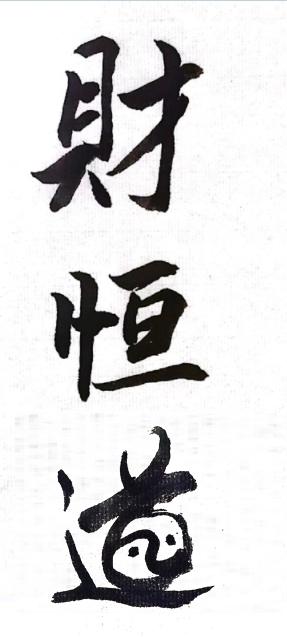 財恒道